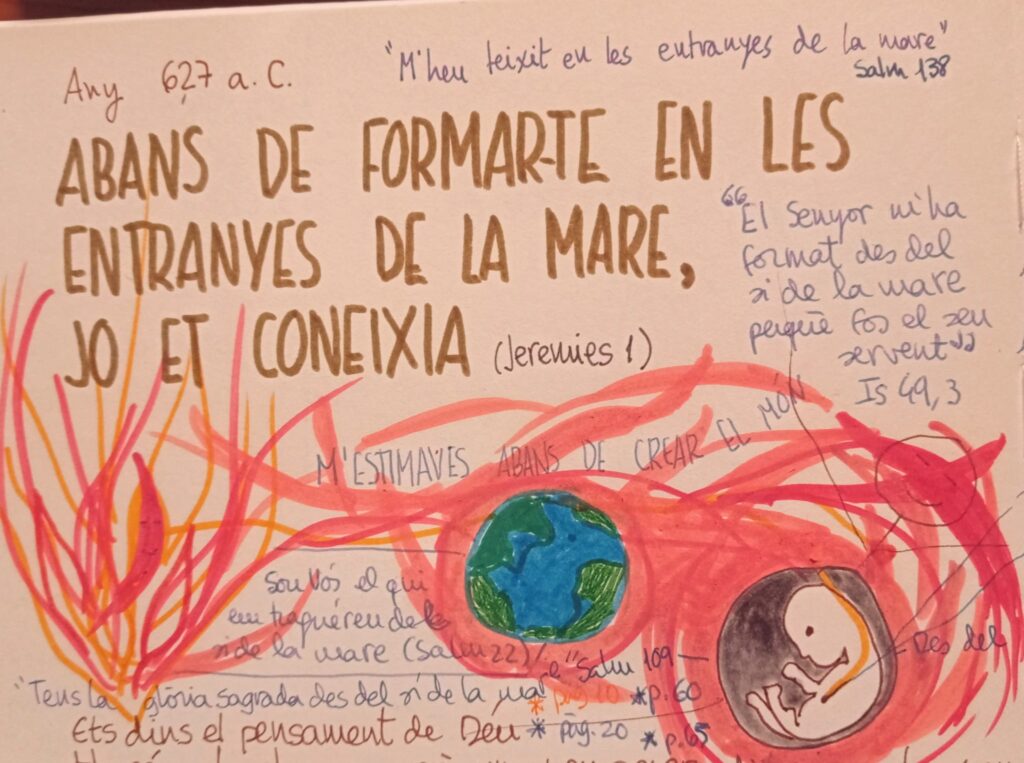 Any 627 a.C.
"M'heu teixit en les entranyes de la mare"
Salm 138
ABANS DE FORMAR-TE EN LES
ENTRANYES DE LA MARE,
JO ET CONEIXIA (Jeremies 1)
"El Senyor m'ha
format des del
si de la mare
perquè fos el seu
servent"
Is 49,3
M'ESTIMAVES ABANS DE CREAR EL MÓN
Sou Vós el qui
em traguéreu de
si de la mare (Salm 22)
"Tens la glòria sagrada des del si de la mare" Salm 109
* pàg. 10 * p. 60
Des del
Ets dins el pensament de Deu * pàg. 20 * p. 65